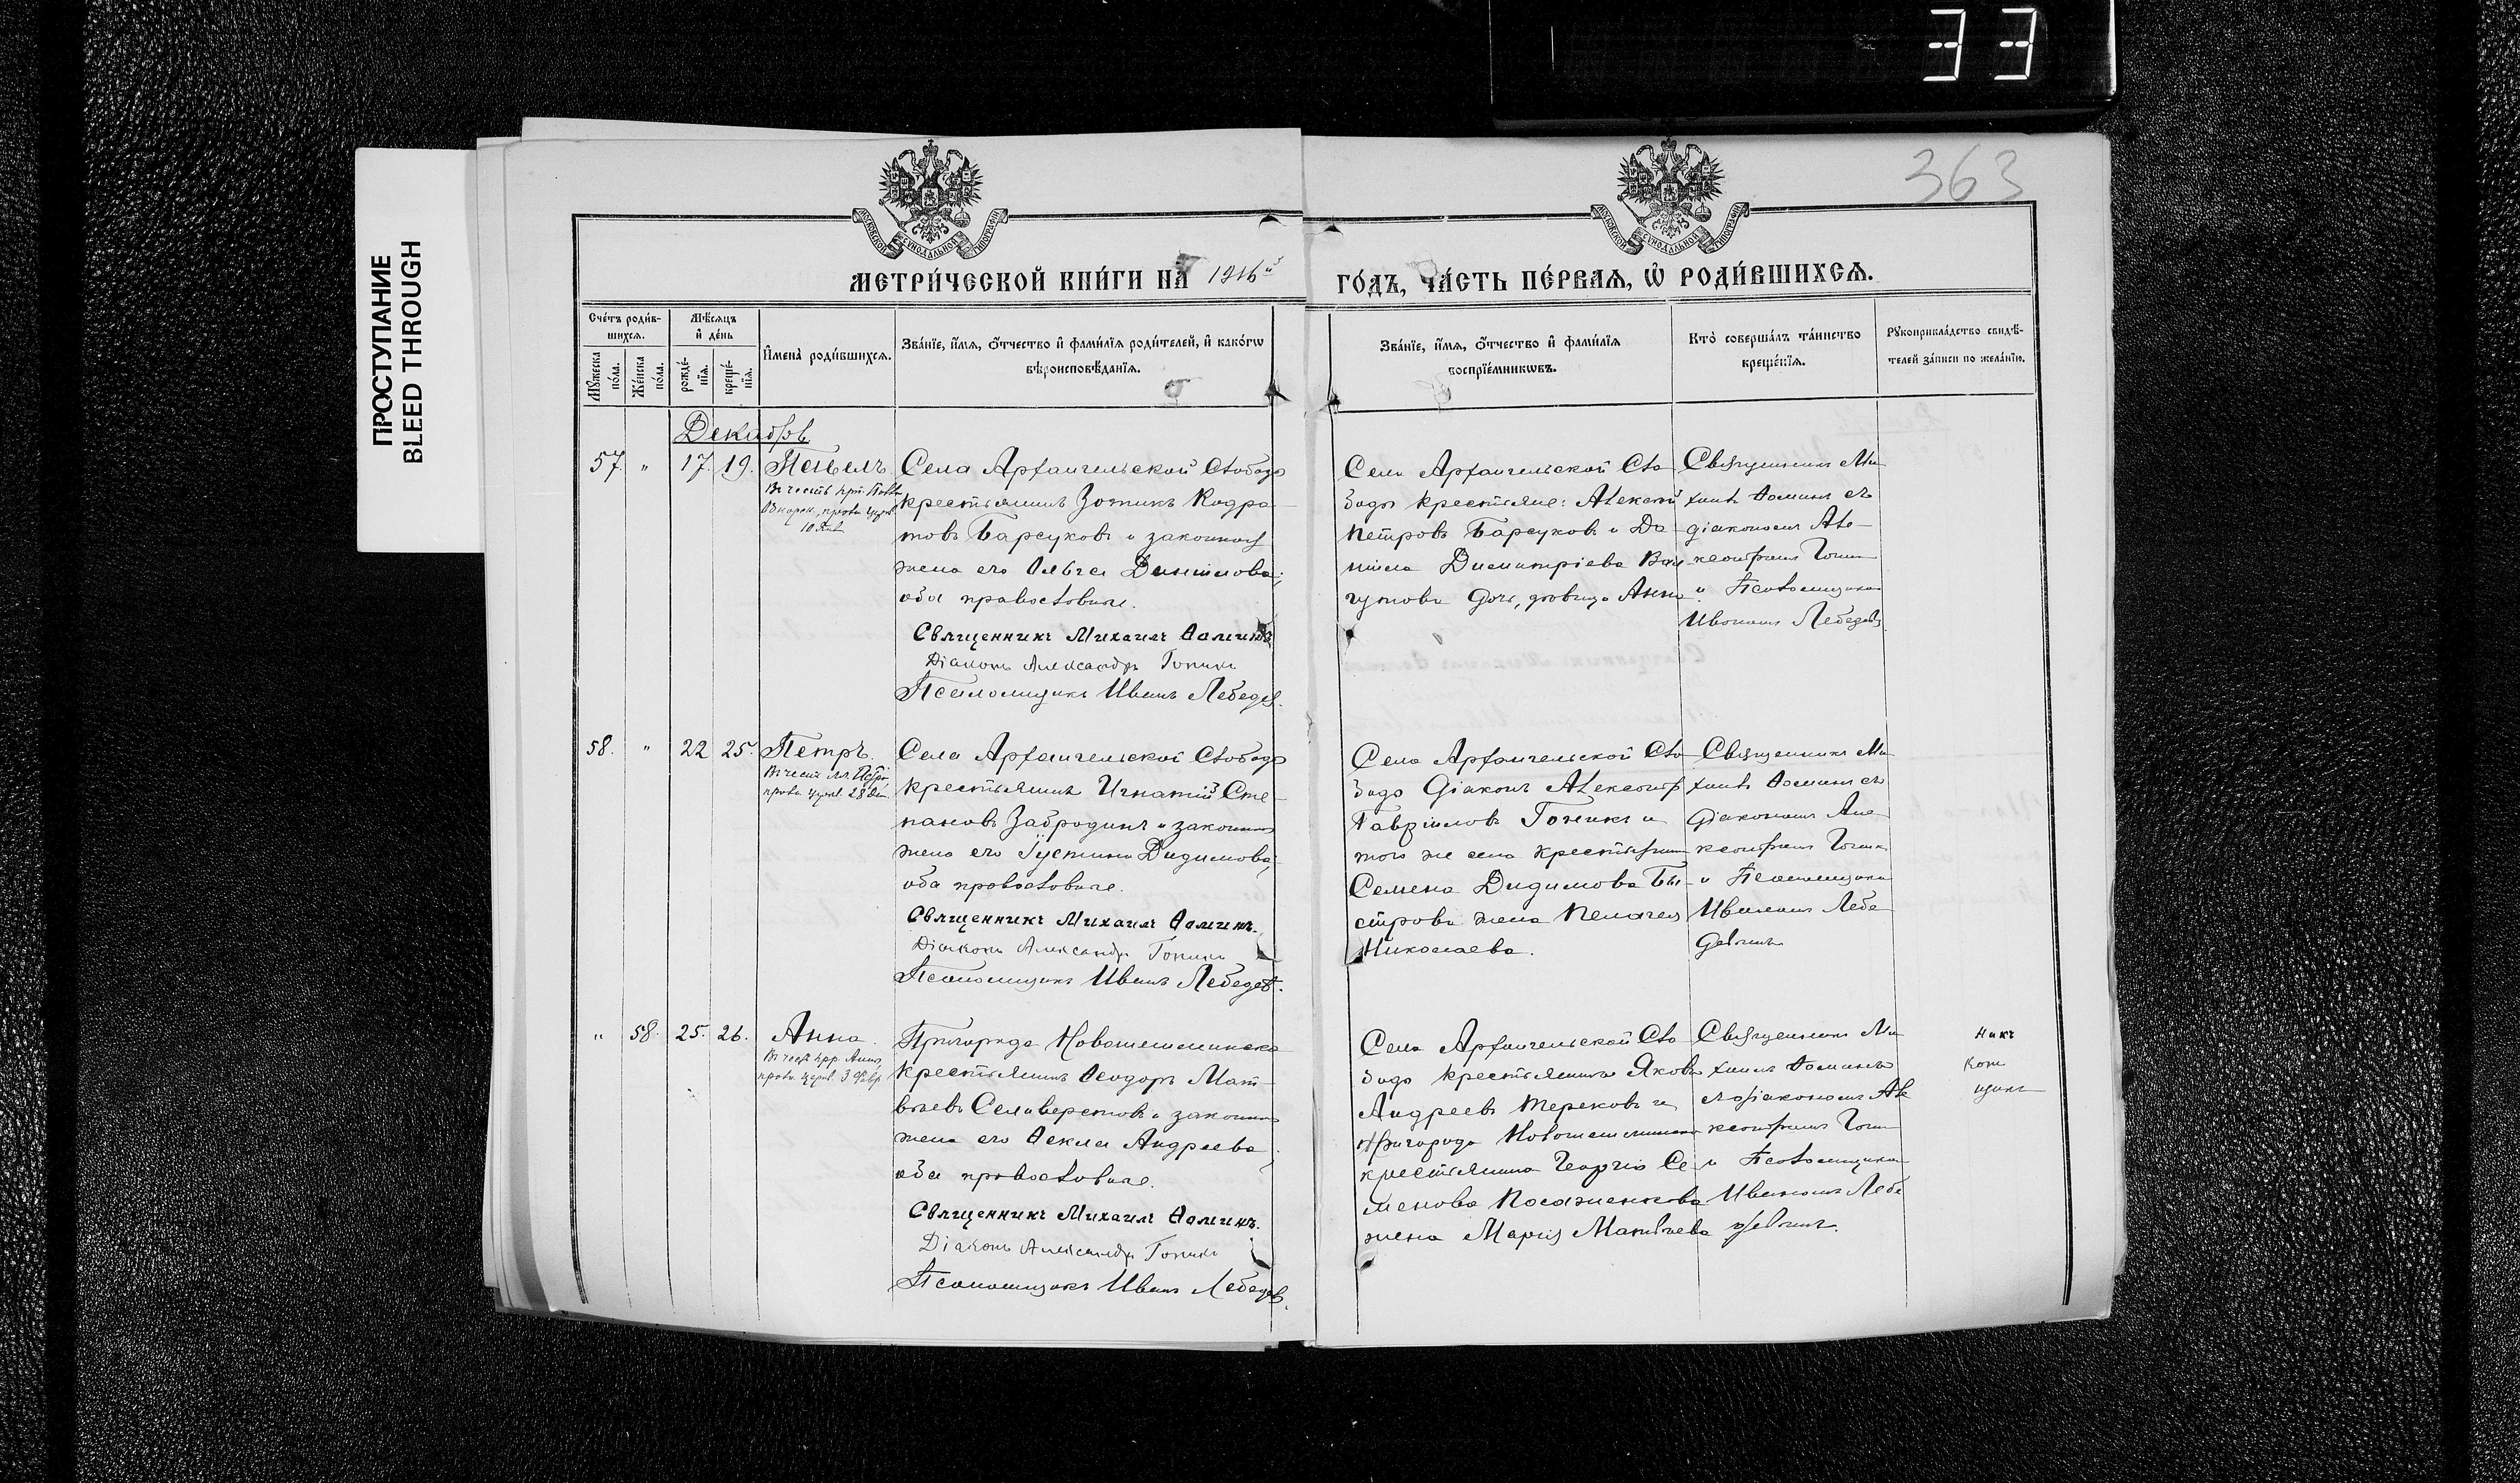 33
363
ПРОСТУПАНИЕ
BLEED THROUGH
МОСКОВСКОЙ СѴНОДАЛЬНОЙ ТИПОГРАФІИ
МОСКОВСКОЙ СѴНОДАЛЬНОЙ ТИПОГРАФІИ
МЕТРИ́ЧЕСКОЙ КНИ́ГИ НА 1916й ГО́ДЪ, ЧА́СТЬ ПЕ́РВАЯ, Ѡ РОДИ́ВШИХСѦ.
Сче́тъ роди́в-
шихся.
Мѹжеска по́ла.
Же́нска по́ла.
Мѣ́сяцъ
и҆ де́нь
рожде́-
нїя.
креще́-
нїя.
И҆мена̀ роди́вшихся.
Зва́нїе, и҆́мя, ѻ҆́тчество и҆ фами́лїя роди́телей, и҆ како́гѡ
вѣроисповѣ́данїя.
Зва́нїе, и҆́мя, ѻ҆́тчество и҆ фами́лїя
воспрїе́мникѡвъ.
Кто̀ соверша́лъ та́инство
креще́нїя.
Рѹкоприкла́дство свидѣ́-
телей за́писи по жела́нїю.
Декабрь
57. " 17. 19. Павелъ.
10 Янв
Села Архангельской Слободы
крестьянинъ Зотикъ Кодра-
товъ Барсуковъ и законная
жена его Ольга Даніилова;
оба православные.
Священникъ Михаилъ Ѳоминъ
Діаконъ Александръ Гопинъ
Псаломщикъ Иванъ Лебедев.
Села Архангельской Сло
боды крестьяне: Алексій
Петровъ Барсуковъ и Да
ніила Димитріева
дочь, девица Анна
Священникъ Ми
хаилъ Ѳоминъ съ
діакономъ Але-
ксандромъ
и Псаломщикомъ
Иваномъ Лебедевы
58. " 22 25. Петръ.
прав. церк. 28 Дек.
Села Архангельской Слободы
крестьянинъ Игнатій Сте-
пановъ Забродинъ и законная
жена его Іустина Дидимова;
оба православные.
Священникъ Михаилъ Ѳоминъ.
Діаконъ Александръ Гопинъ
Псаломщикъ Иванъ Лебедев.
Села Архангельской Сло
боды Діаконъ Александр
Гавріиловъ Гопинъ и
того же села крестьянина
Семена Дидимова Бы-
строва жена Пелагея
Николаева.
Священникъ Ми
хаилъ Ѳоминъ съ
Діакономъ Але
ксандромъ
и Псаломщикомъ
Иваномъ Лебе
девымъ
" 58. 25. 26. Анна.
Въ честь прр. Анны
прав. церк. 3 Февр
Пригорода Новошешминска
крестьянинъ Ѳеодоръ Мат-
вѣевъ Селиверстовъ и законная
жена его Ѳекла Андреева;
оба православные.
Священникъ Михаилъ Ѳоминъ.
Діаконъ Александръ Гопинъ
Псаломщикъ Иванъ Лебедев.
Села Архангельской Сло
боды крестьянинъ Яковъ
Андреевъ Тереховъ и
пригорода Новошешминска
крестьянина Георгія Се
менова жена Марія Матвѣева
Священникъ Ми
хаилъ Ѳоминъ
съ діакономъ Але
ксандромъ
и Псаломщикомъ
Иваномъ Лебе
девымъ.